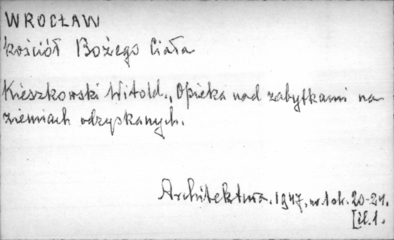 WROCŁAW
kościół Bożego Ciała
Kieszkowski Witold., Opieka nad zabytkami na
ziemiach odzyskanych.
Architektura. 1947, nr 1 ok. 20-24.
[il. 1.